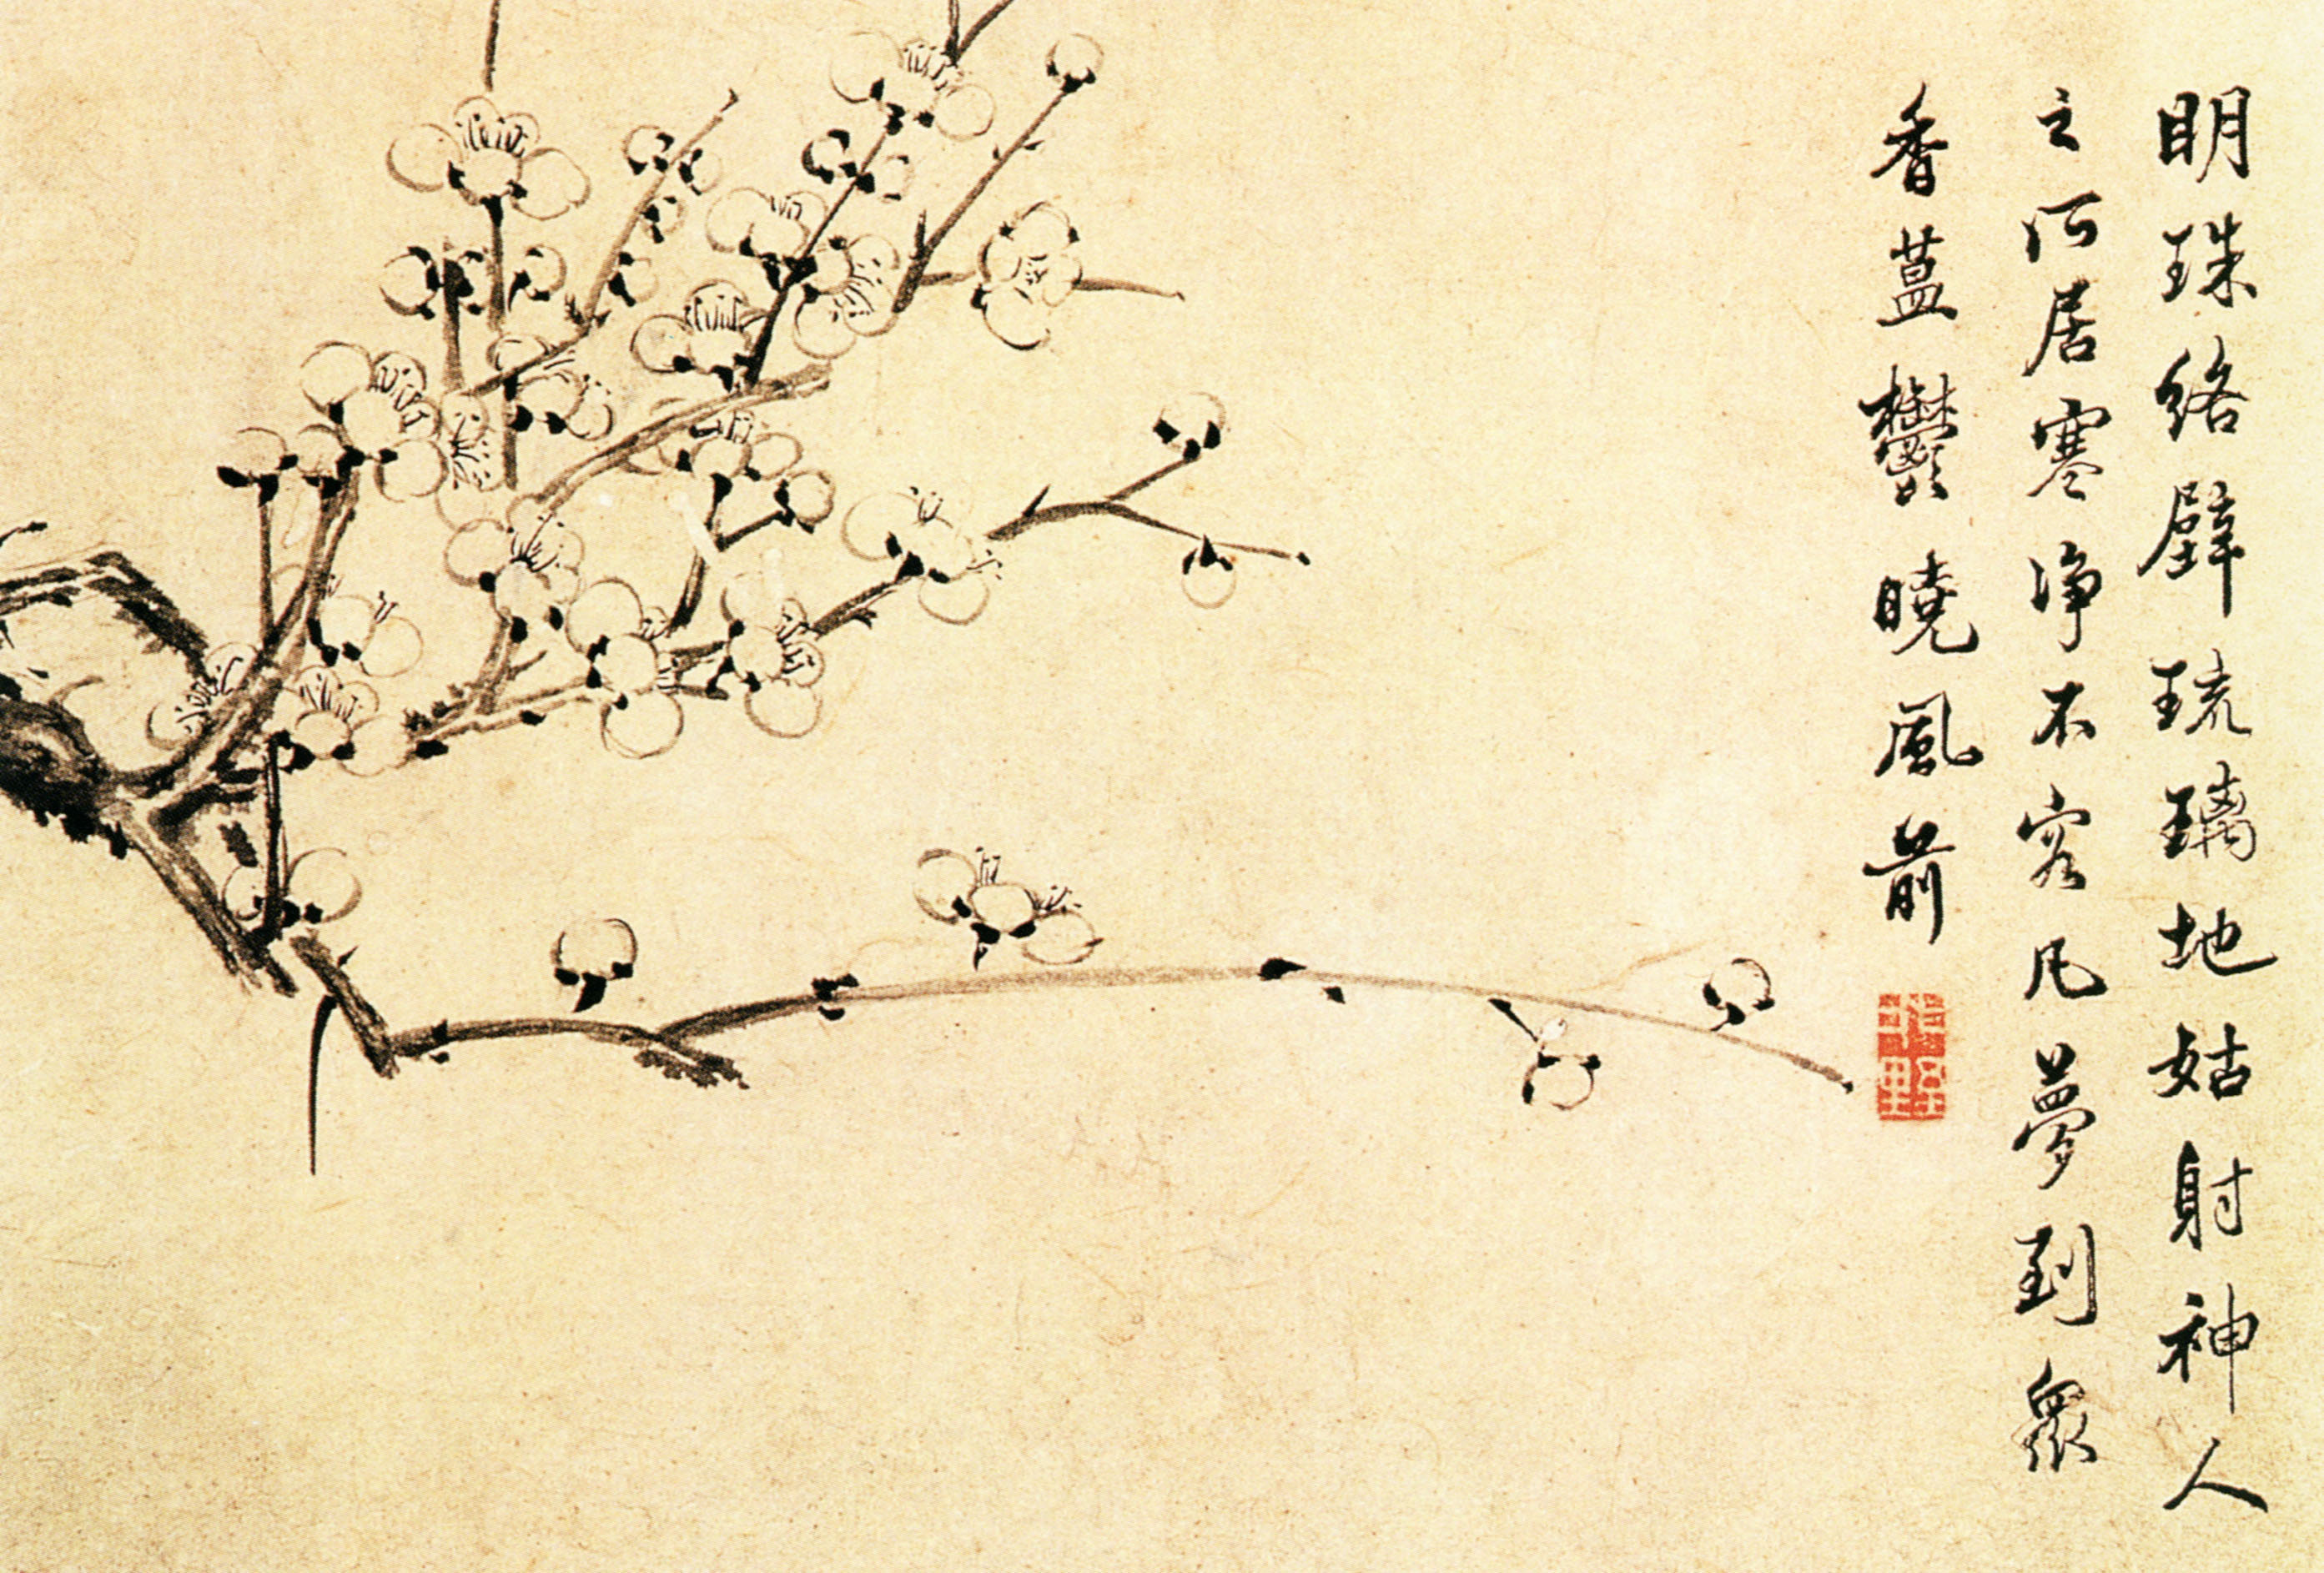 明珠絡壁琉璃地姑射神人
之所居寒淨不容凡夢到眾
香蒀鬱曉風前